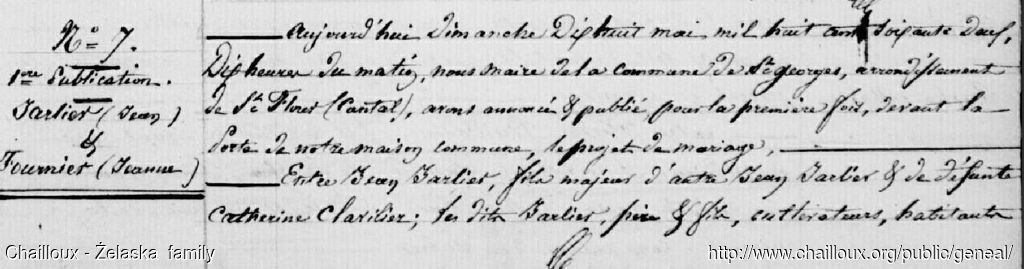 N° 7.
1ère Publication.
Jarlier (Jean)
&
Fournier (Jeanne)
Aujourd'hui Dimanche Dixhuit mai mil huit cent soixante Deux,
Dix heures du matin, nous maire de la commune de St Georges, arrondissement
de St Flour (Cantal), avons annoncé & publié pour la première fois, devant la
Porte de notre maison commune, le projet de mariage,
Entre Jean Jarlier, fils majeur d'autre Jean Jarlier & de défunte
Catherine ; les dits Jarlier, père & fils, cultivateurs, habitants
Chailloux - Żelaska family
http://www.chailloux.org/public/geneal/